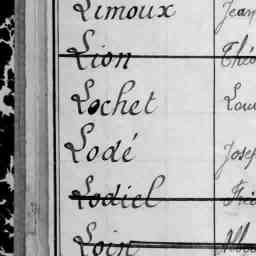 Limoux Jean
Lion Théo
Lochet Lou
Lodé Josep
Lodiel
Loin